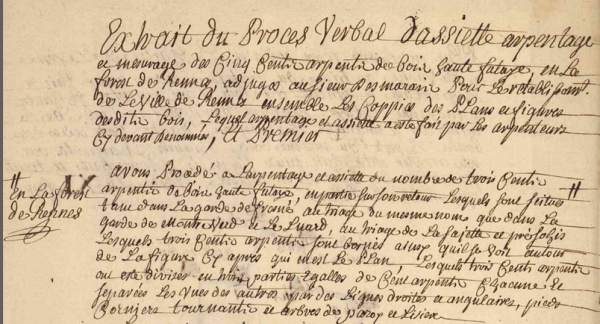 Extrait du Proces Verbal dassiette arpentage
et mesurage des Cinq Cents arpents de bois haute futaye, en La
forest de Rennes, adjugés au sieur Desmarais Pour Le retablissemt.
de La Ville de Rennes ensemble Les Coppies des Plans et figures
desdits bois, Lequel arpentage et assiette a esté fait par Les arpenteurs
Cy devant Denommés, Et Premier
avons Procédé a Larpentage et assiette du nombre de trois Cents
En La forest
arpents de bois haute futaye, en partie sur son retour Lesquels sont scitués
de Rennes
tant dans La garde de au triage du mesme nom que dans La
garde de et Le Luard, au triage de La et
Lesquels trois Cents arpents sont bornés ainsy quil se voit autour
de La figure Cy apres qui en est Le Plan Lesquels trois Cents arpents
ont esté divisés en trois parties Egalles de Cent arpents Chacune et
separées Les Unes des autres par des Lignes droites et angulaires, pieds
Corniers tournants et arbres de paroy et Liziere